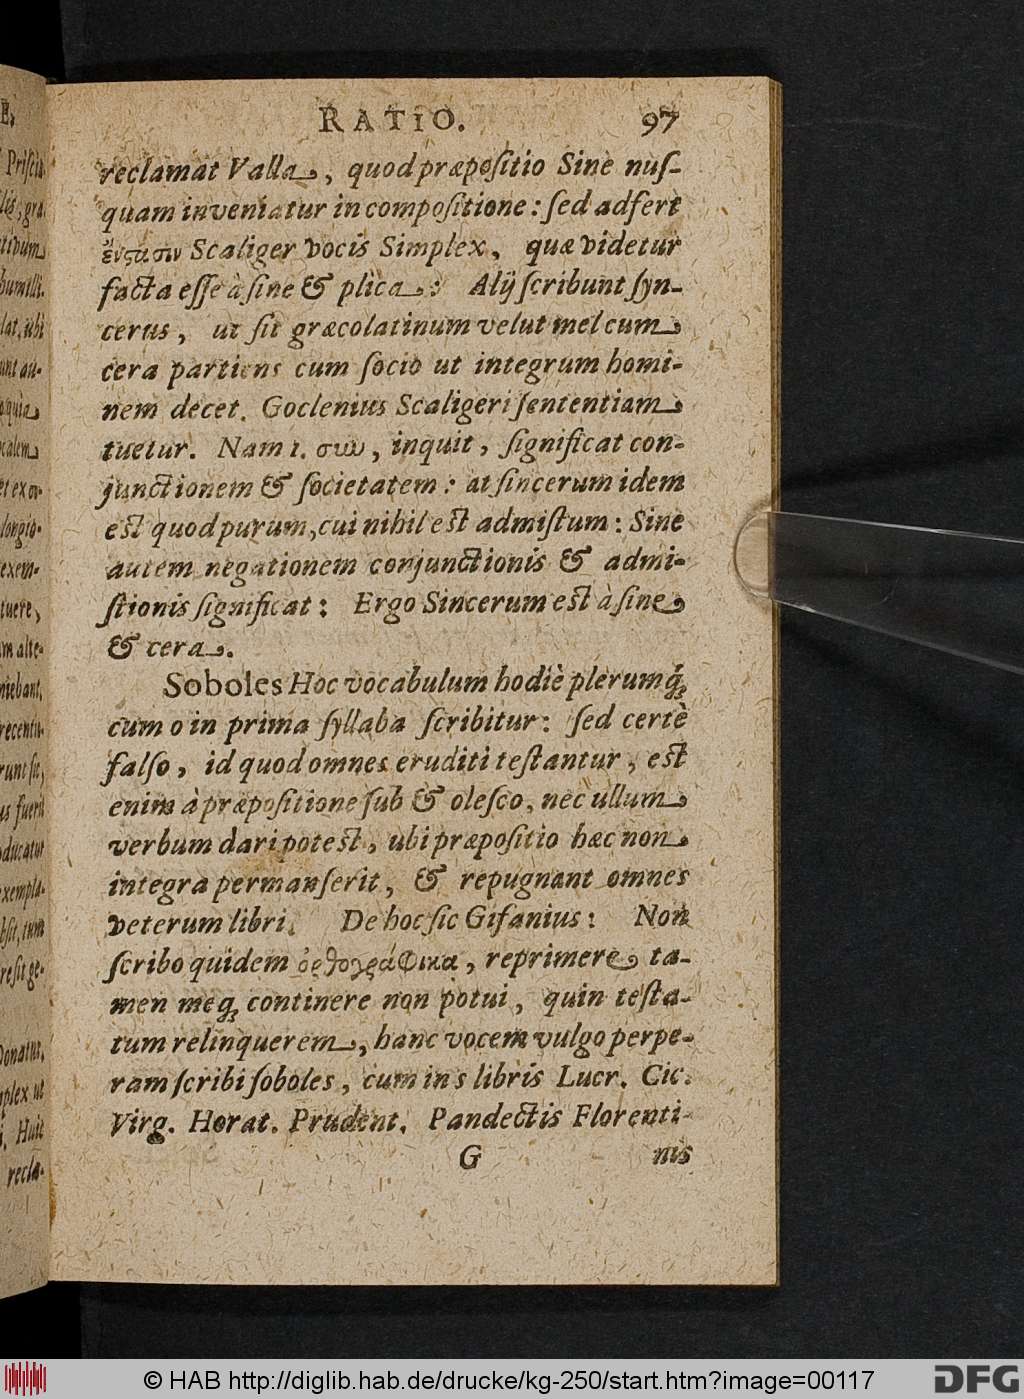 RATIO. 97
reclamat Valla, quod præpoſitio Sine nuſ-
quam inveniatur in compoſitione: ſed adfert
ἔνςασιν Scaliger vocis Simplex, quæ videtur
facta eſſe à ſine & plica: Alij ſcribunt ſyn-
cerus, ut ſit græcolatinum velut mel cum
cera partiens cum ſocio ut integrum homi-
nem decet. Goclenius Scaligeri ſententiam
tuetur. Nam 1. σιω, inquit, ſignificat con-
junctionem & ſocietatem: at ſincerum idem
eſt quod purum, cui nihil eſt admiſtum: Sine
autem negationem conjunctionis & admi-
ſtionis ſignificat: Ergo Sincerum eſt à ſine
& cera.
Soboles Hoc vocabulum hodiè plerumq́;
cum o in prima ſyllaba ſcribitur: ſed certè
falſo, id quod omnes eruditi teſtantur, eſt
enim à præpoſitione ſub & oleſco, nec ullum
verbum dari poteſt, ubi præpoſitio hæc non
integra permanſerit, & repugnant omnes
veterum libri. De hoc ſic Gifanius: Non
ſcribo quidem ὀρθογράφικα, reprimere ta-
men meq; continere non potui, quin teſta-
tum relinquerem, hanc vocem vulgo perpe-
ram ſcribi ſoboles, cum in s libris Lucr. Cic.
Virg. Horat. Prudent. Pandectis Florenti-
G nis
E.
Priſcia-
tivum
humili-
lat, ubi
unt au-
quia
calem
et ex or-
longio-
exem-
tuere,
m alte-
niebant,
recentio-
runt ſit,
us fuerit
oducatur
exempla-
bſit, tum
reſit ge-
Donatus,
mplex ut
i. Huic
recla-
© HAB http://diglib.hab.de/drucke/kg-250/start.htm?image=00117
DFG